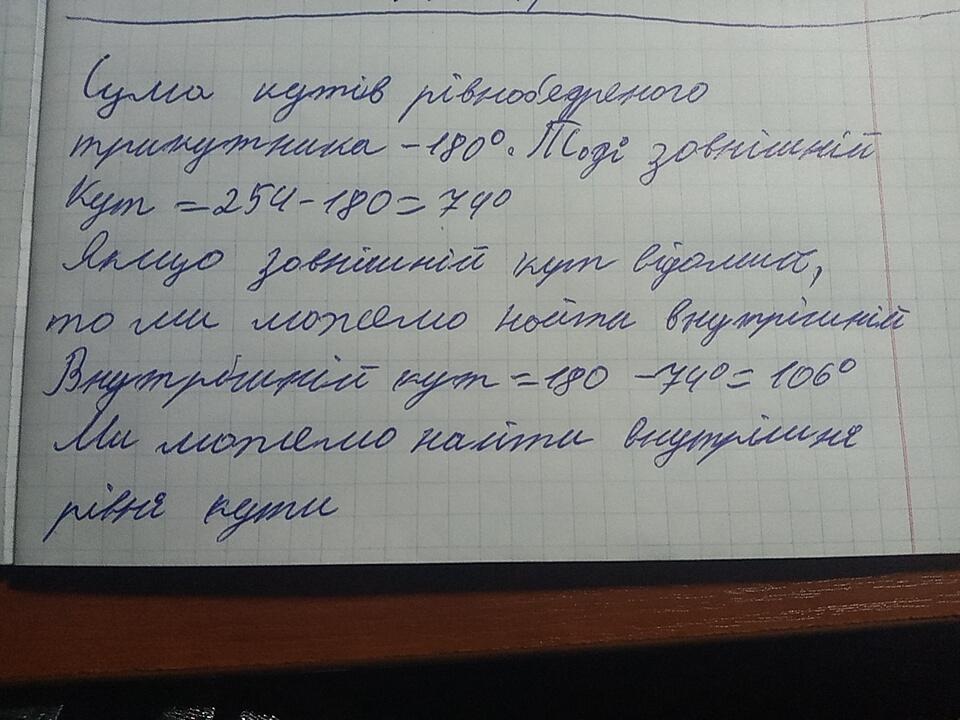 Сума кутів рівнобедреного
трикутника - 180°. Тоді зовнішній
Кут = 254 - 180 = 74°
Якщо зовнішній кут відомий,
то ми можемо найти внутрішній
Внутрішній кут = 180 - 74° = 106°
Ми можемо найти внутрішня
рівня кути